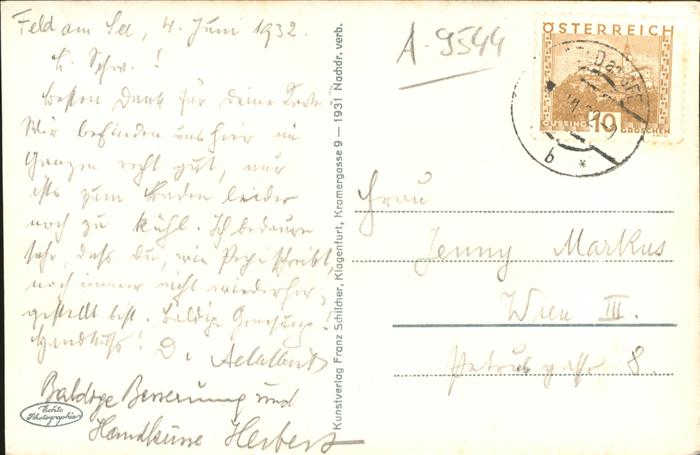 Feld am See, 4. Juni 1932.
L. Schw.!
Besten Dank für deine Karte
Wir befinden uns hier im
Ganzen recht gut, nur
ists zum Baden leider
noch zu kühl. Ich bedaure
sehr, dass du, wie Pepi schreibt,
noch immer nicht wiederher-
gestellt bist. Baldige Genesung!
Handkuss! D. Adalbert
Baldige Besserung und
Handküsse Herbert
Echte
Photographie
Kunstverlag Franz Schilcher, Klagenfurt, Kramergasse 9 — 1931 Nachdr. verb.
A-9544
ÖSTERREICH
GÜSSING 10 GROSCHEN
b *
Frau
Jenny Markus
Wien III.
Petrusgasse 8.